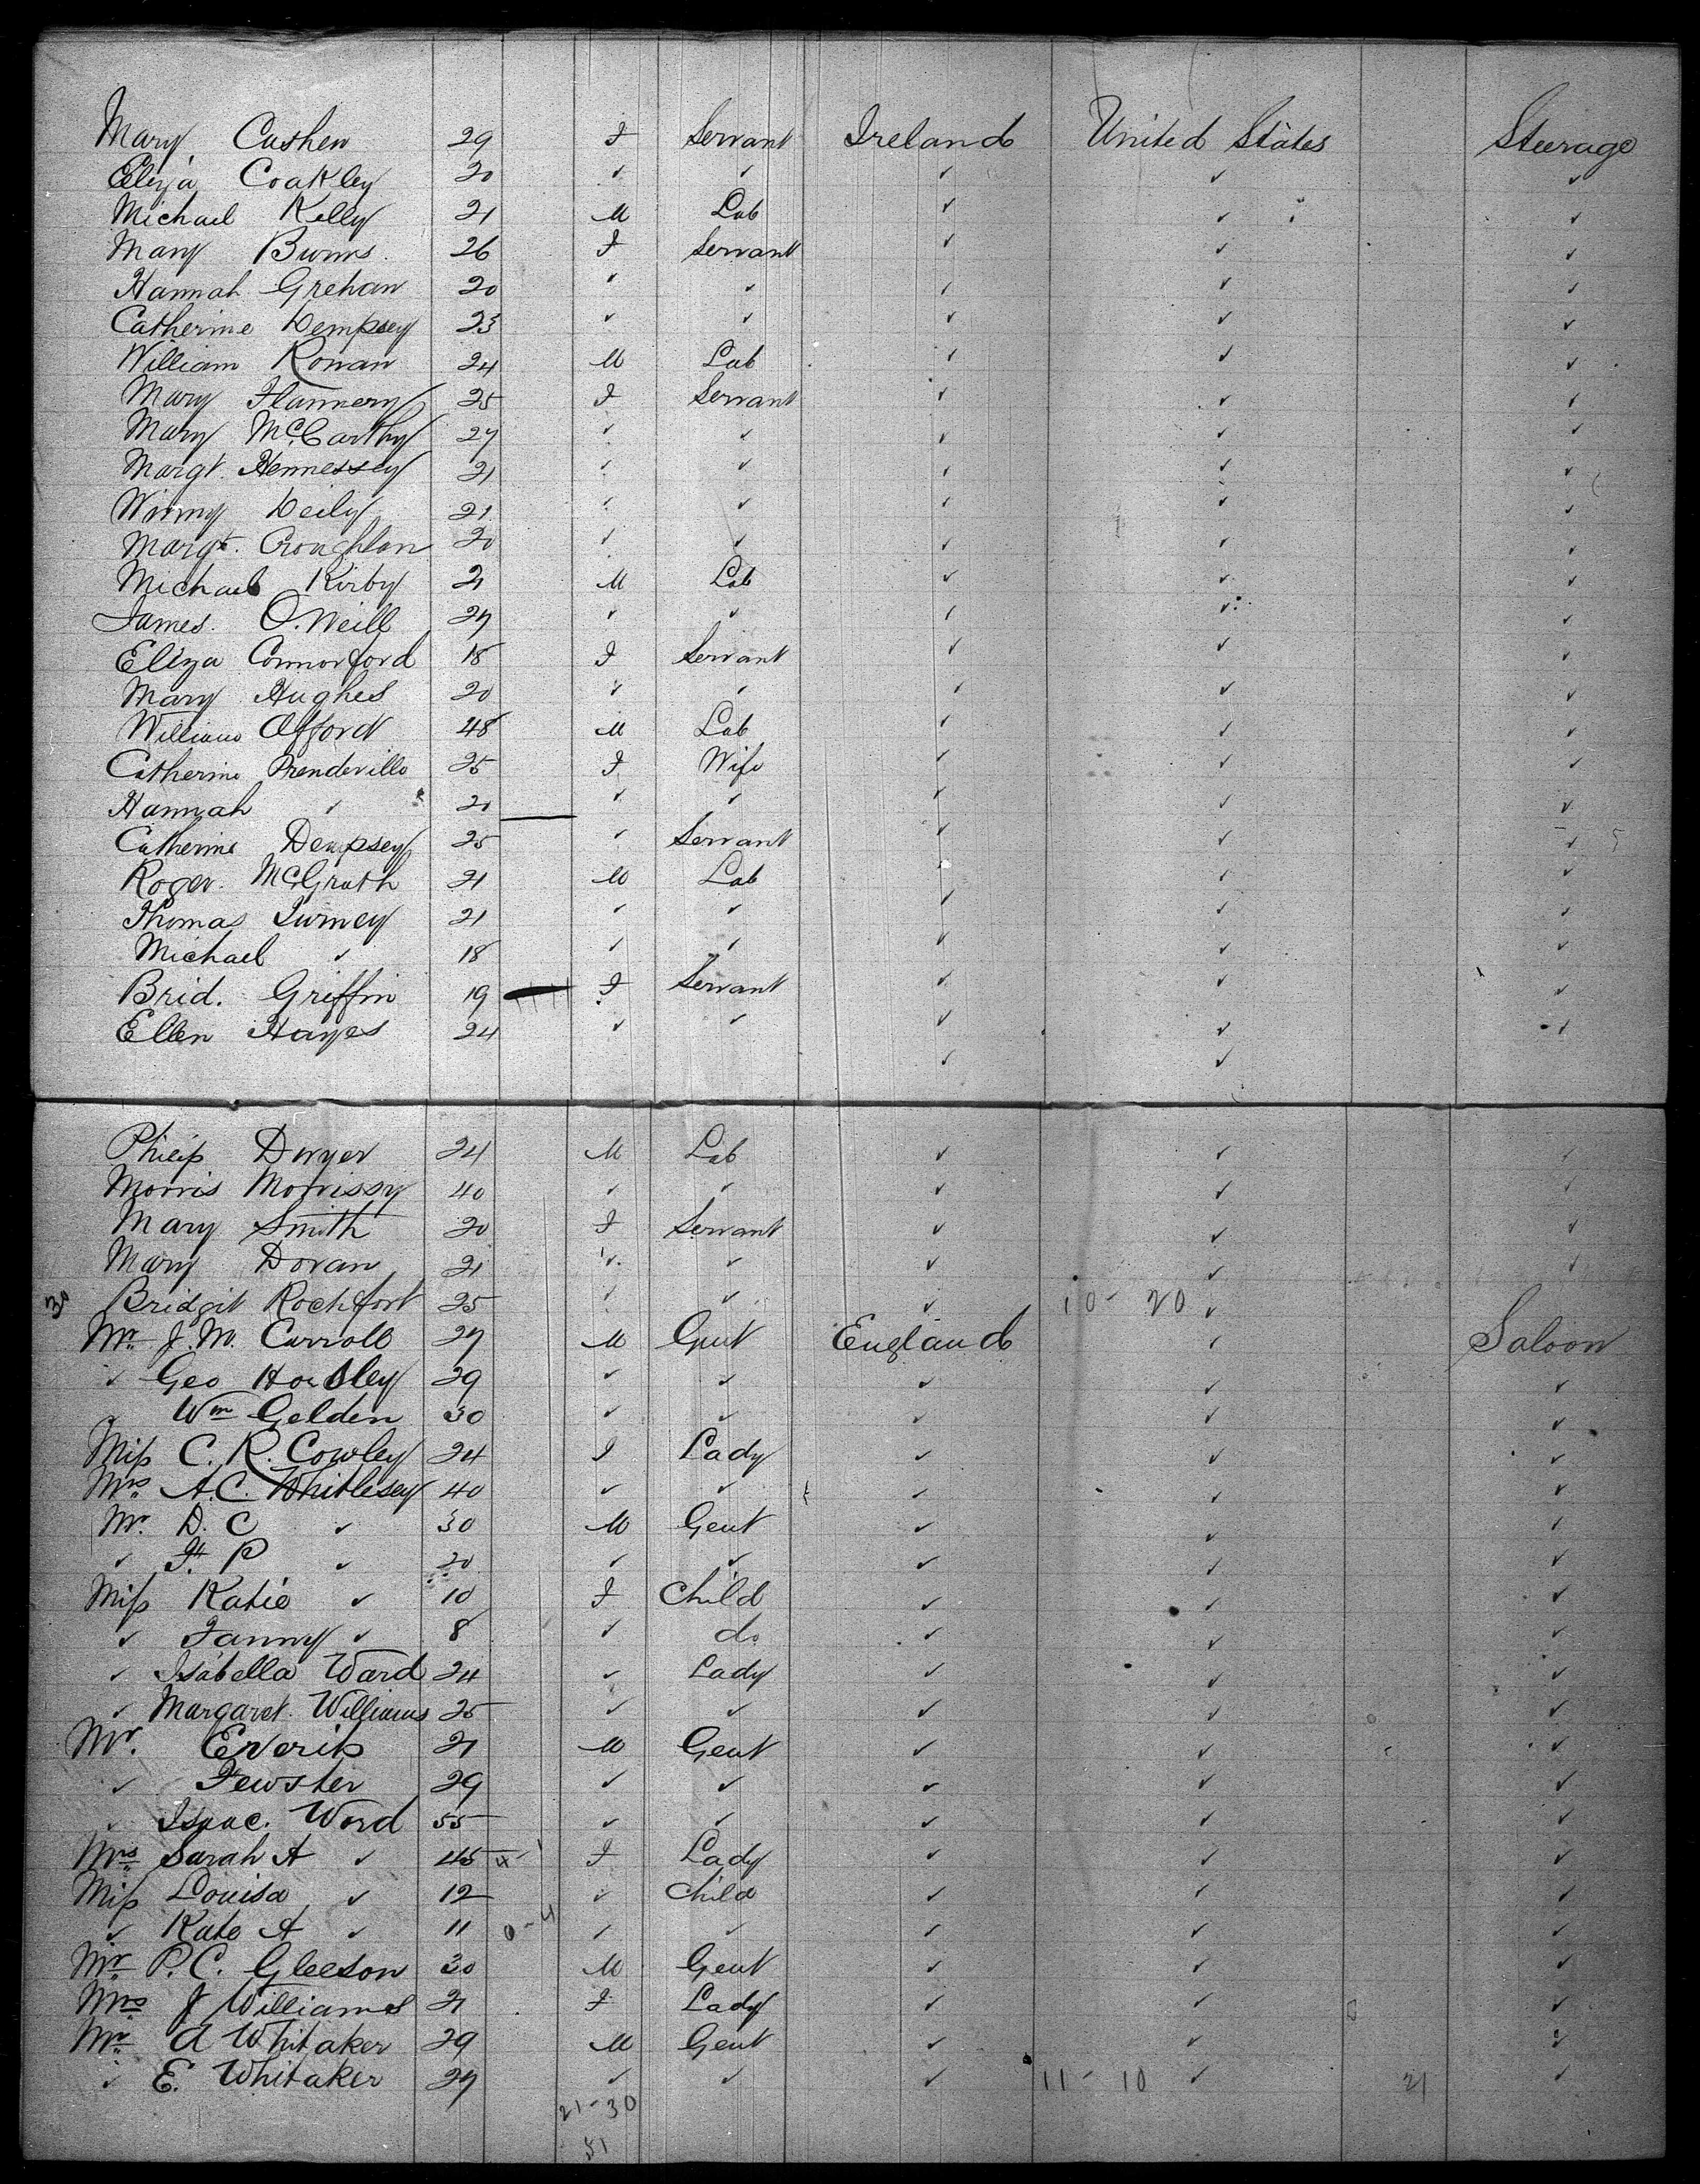 Mary Cashen 29 F Servant Ireland United States Steerage
Eliza Coakley 20 ✓ ✓ ✓ ✓ ✓
Michael Kelly 21 M Lab ✓ ✓ ✓
Mary Burns 26 F Servant ✓ ✓ ✓
Hannah Grehan 20 ✓ ✓ ✓ ✓ ✓
Catherine Dempsey 23 ✓ ✓ ✓ ✓ ✓
William Ronan 24 M Lab ✓ ✓ ✓
Mary Flannery 25 F Servant ✓ ✓ ✓
Mary McCarthy 27 ✓ ✓ ✓ ✓ ✓
Margt. Hennessey 21 ✓ ✓ ✓ ✓ ✓
Winny Deily 21 ✓ ✓ ✓ ✓ ✓
Margt. Croughlan 20 ✓ ✓ ✓ ✓ ✓
Michael Kirby 21 M Lab ✓ ✓ ✓
James O.Neill 27 ✓ ✓ ✓ ✓ ✓
Eliza Connorford 18 F Servant ✓ ✓ ✓
Mary Hughes 20 ✓ ✓ ✓ ✓ ✓
William Offord 48 M Lab ✓ ✓ ✓
Catherine Prendeville 25 F Wife ✓ ✓ ✓
Hannah ✓ 20 ✓ ✓ ✓ ✓ ✓
Catherine Dempsey 25 ✓ Servant ✓ ✓ ✓
Roger McGrath 21 M Lab ✓ ✓ ✓
Thomas 21 ✓ ✓ ✓ ✓ ✓
Michael ✓ 18 ✓ ✓ ✓ ✓ ✓
Brid. Griffin 19 F Servant ✓ ✓ ✓
Ellen Hayes 24 ✓ ✓ ✓ ✓ ✓
✓ ✓
Philip Dwyer 24 M Lab ✓ ✓ ✓
Morris Morrissy 40 ✓ ✓ ✓ ✓ ✓
Mary Smith 20 F Servant ✓ ✓ ✓
Mary Doran 21 ✓ ✓ ✓ ✓ ✓
30 Bridgit Rochfort 25 ✓ ✓ ✓ 10 - 20 ✓
Mr. J. M. Carroll 27 M Gent England ✓ Saloon
✓ Geo Horsley 29 ✓ ✓ ✓ ✓ ✓
✓ Wm Gelden 30 ✓ ✓ ✓ ✓ ✓
Miss C. R. Cowley 24 F Lady ✓ ✓ ✓
Mrs A.C. Whitlesey 40 ✓ ✓ ✓ ✓ ✓
Mr. D. C ✓ 30 M Gent ✓ ✓ ✓
✓ P ✓ 20 ✓ ✓ ✓ ✓ ✓
Miss Katie ✓ 10 F Child ✓ ✓ ✓
✓ Fanny ✓ 8 ✓ do ✓ ✓ ✓
✓ Isabella Ward 24 ✓ Lady ✓ ✓ ✓
✓ Margaret Williams 25 ✓ ✓ ✓ ✓ ✓
Mr. 21 M Gent ✓ ✓ ✓
✓ Fewster 29 ✓ ✓ ✓ ✓ ✓
✓ Isaac Word 55 ✓ ✓ ✓ ✓ ✓
Mrs Sarah A ✓ 45 4 - 1 F Lady ✓ ✓
Miss Louisa ✓ 12 ✓ Child ✓ ✓ ✓
✓ Kate A ✓ 11 0 - 4 ✓ ✓ ✓ ✓ ✓
Mr P. C. Gleeson 30 M Gent ✓ ✓ ✓
Mrs J Williams 21 F Lady ✓ ✓ ✓
Mr A Whitaker 29 M Gent ✓ ✓ ✓
✓ E. Whitaker 27 ✓ ✓ ✓ 11 - 10 ✓ 21 ✓
21 - 30
51